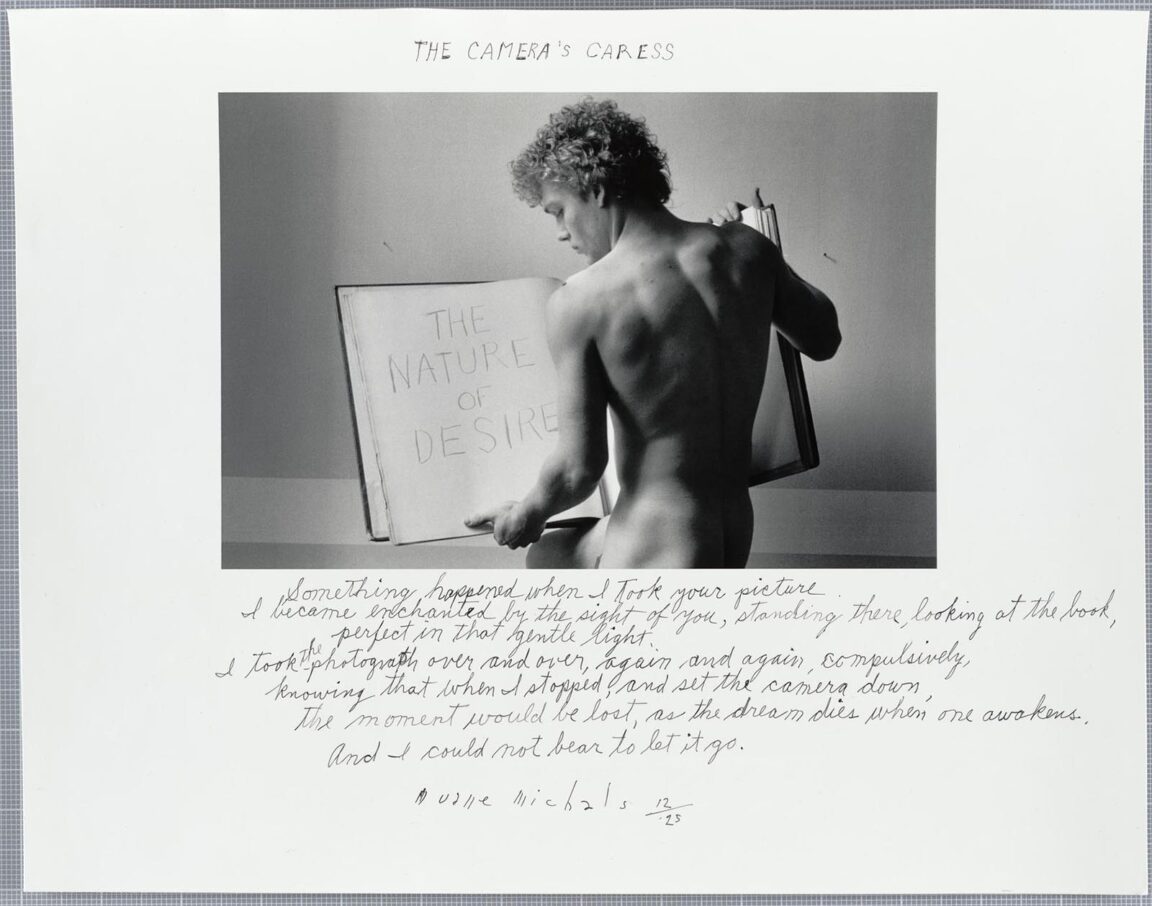 THE CAMERA'S CARESS
THE
NATURE
OF
DESIRE
Something happened when I took your picture.
I became enchanted by the sight of you, standing there, looking at the book,
perfect in that gentle light.
I took the photograph over and over, again and again, compulsively,
knowing that when I stopped, and set the camera down,
the moment would be lost, as the dream dies when one awakens.
And I could not bear to let it go.
Duane Michals 12/25